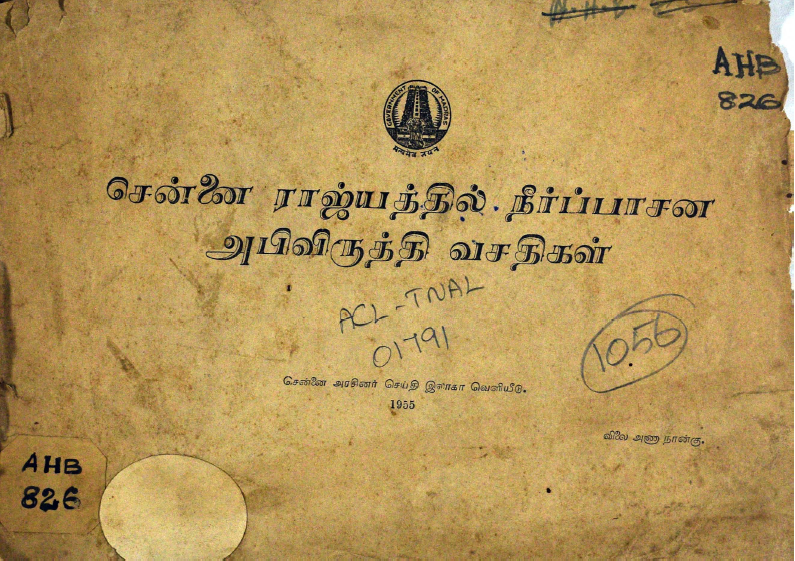 AHB
826
GOVERNMENT OF MADRAS
सत्यमेव जयते
சென்னை ராஜ்யத்தில் நீர்ப்பாசன
அபிவிருத்தி வசதிகள்
ACL-TNAL
01791
1056
சென்னை அரசினர் செய்தி இலாகா வெளியீடு.
1955
விலை அணா நான்கு.
AHB
826